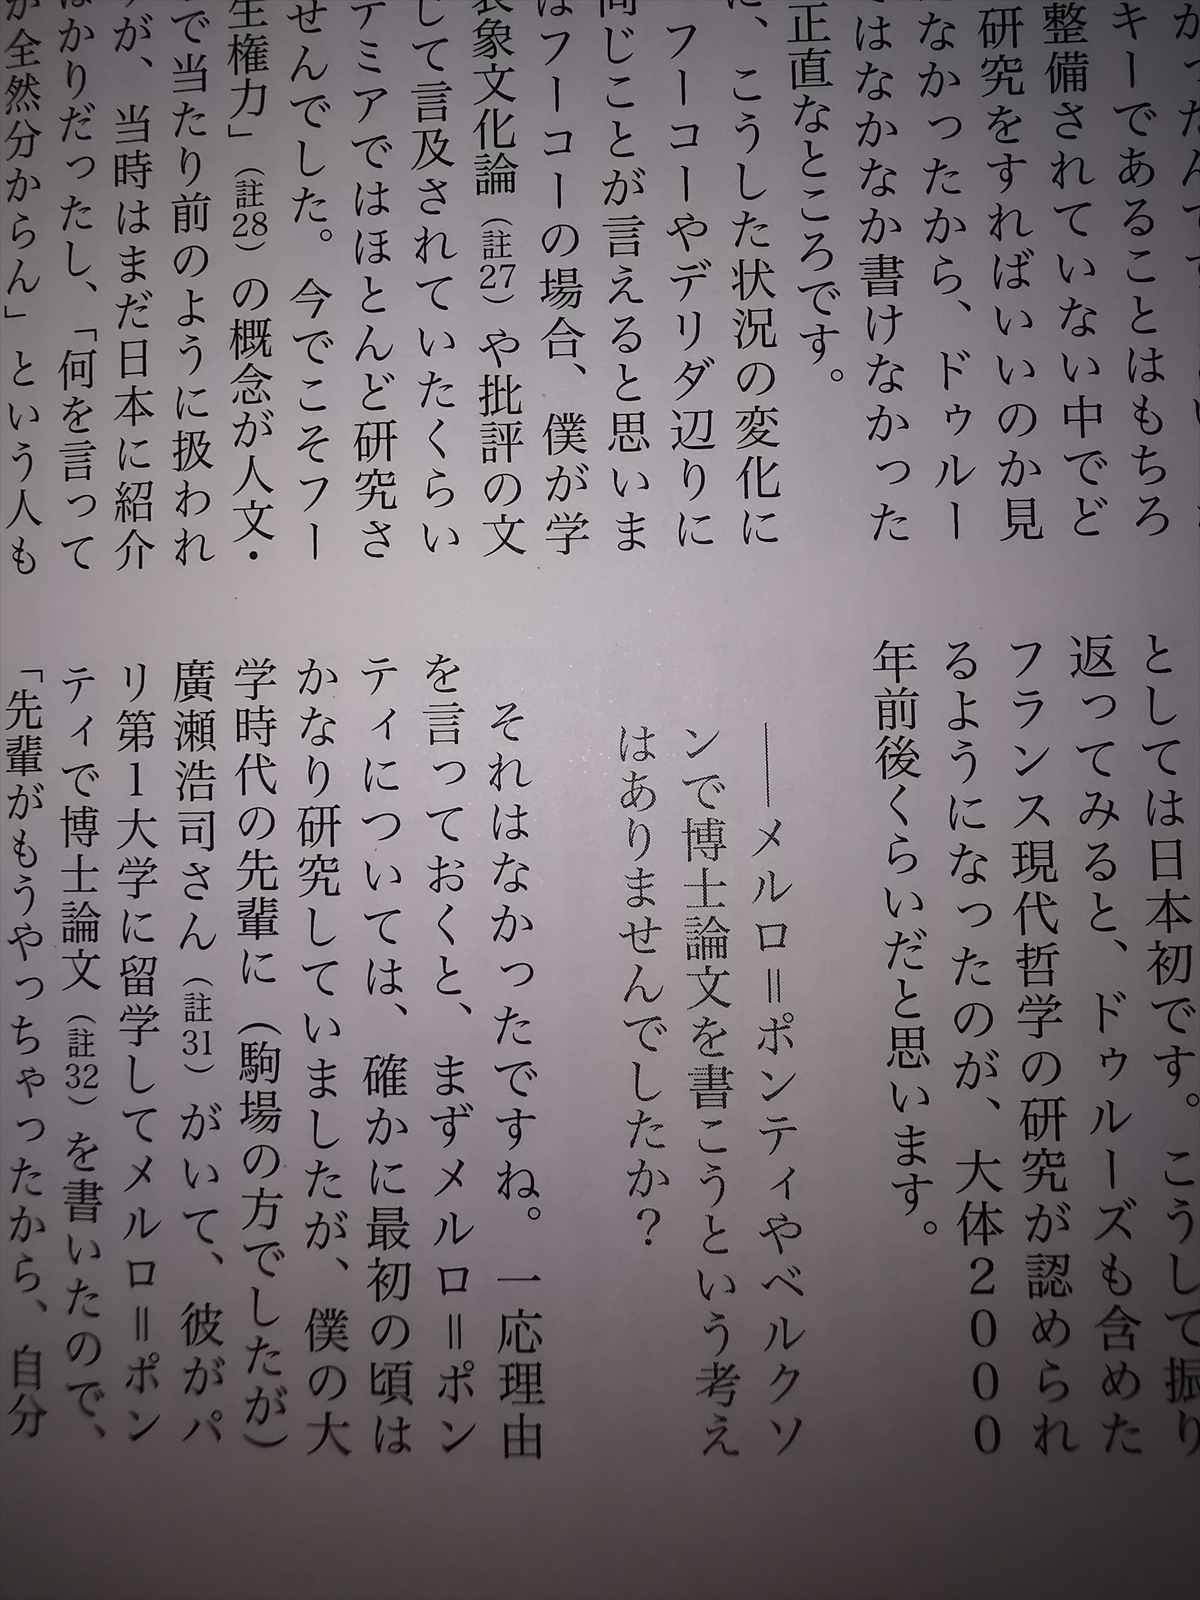 キーであることはもちろ
整備されていない中でど
研究をすればいいのか見
なかったから、ドゥルー
はなかなか書けなかった
正直なところです。
、こうした状況の変化に
フーコーやデリダ辺りに
同じことが言えると思いま
はフーコーの場合、僕が学
表象文化論（註27）や批評の文
して言及されていたくらい
デミアではほとんど研究さ
せんでした。今でこそフー
生権力」（註28）の概念が人文・
で当たり前のように扱われ
が、当時はまだ日本に紹介
ばかりだったし、「何を言って
が全然分からん」という人も
としては日本初です。こうして振り
返ってみると、ドゥルーズも含めた
フランス現代哲学の研究が認められ
るようになったのが、大体２０００
年前後くらいだと思います。
――メルロ＝ポンティやベルクソ
ンで博士論文を書こうという考え
はありませんでしたか？
それはなかったですね。一応理由
を言っておくと、まずメルロ＝ポン
ティについては、確かに最初の頃は
かなり研究していましたが、僕の大
学時代の先輩に（駒場の方でしたが）
廣瀬浩司さん（註31）がいて、彼がパ
リ第１大学に留学してメルロ＝ポン
ティで博士論文（註32）を書いたので、
「先輩がもうやっちゃったから、自分